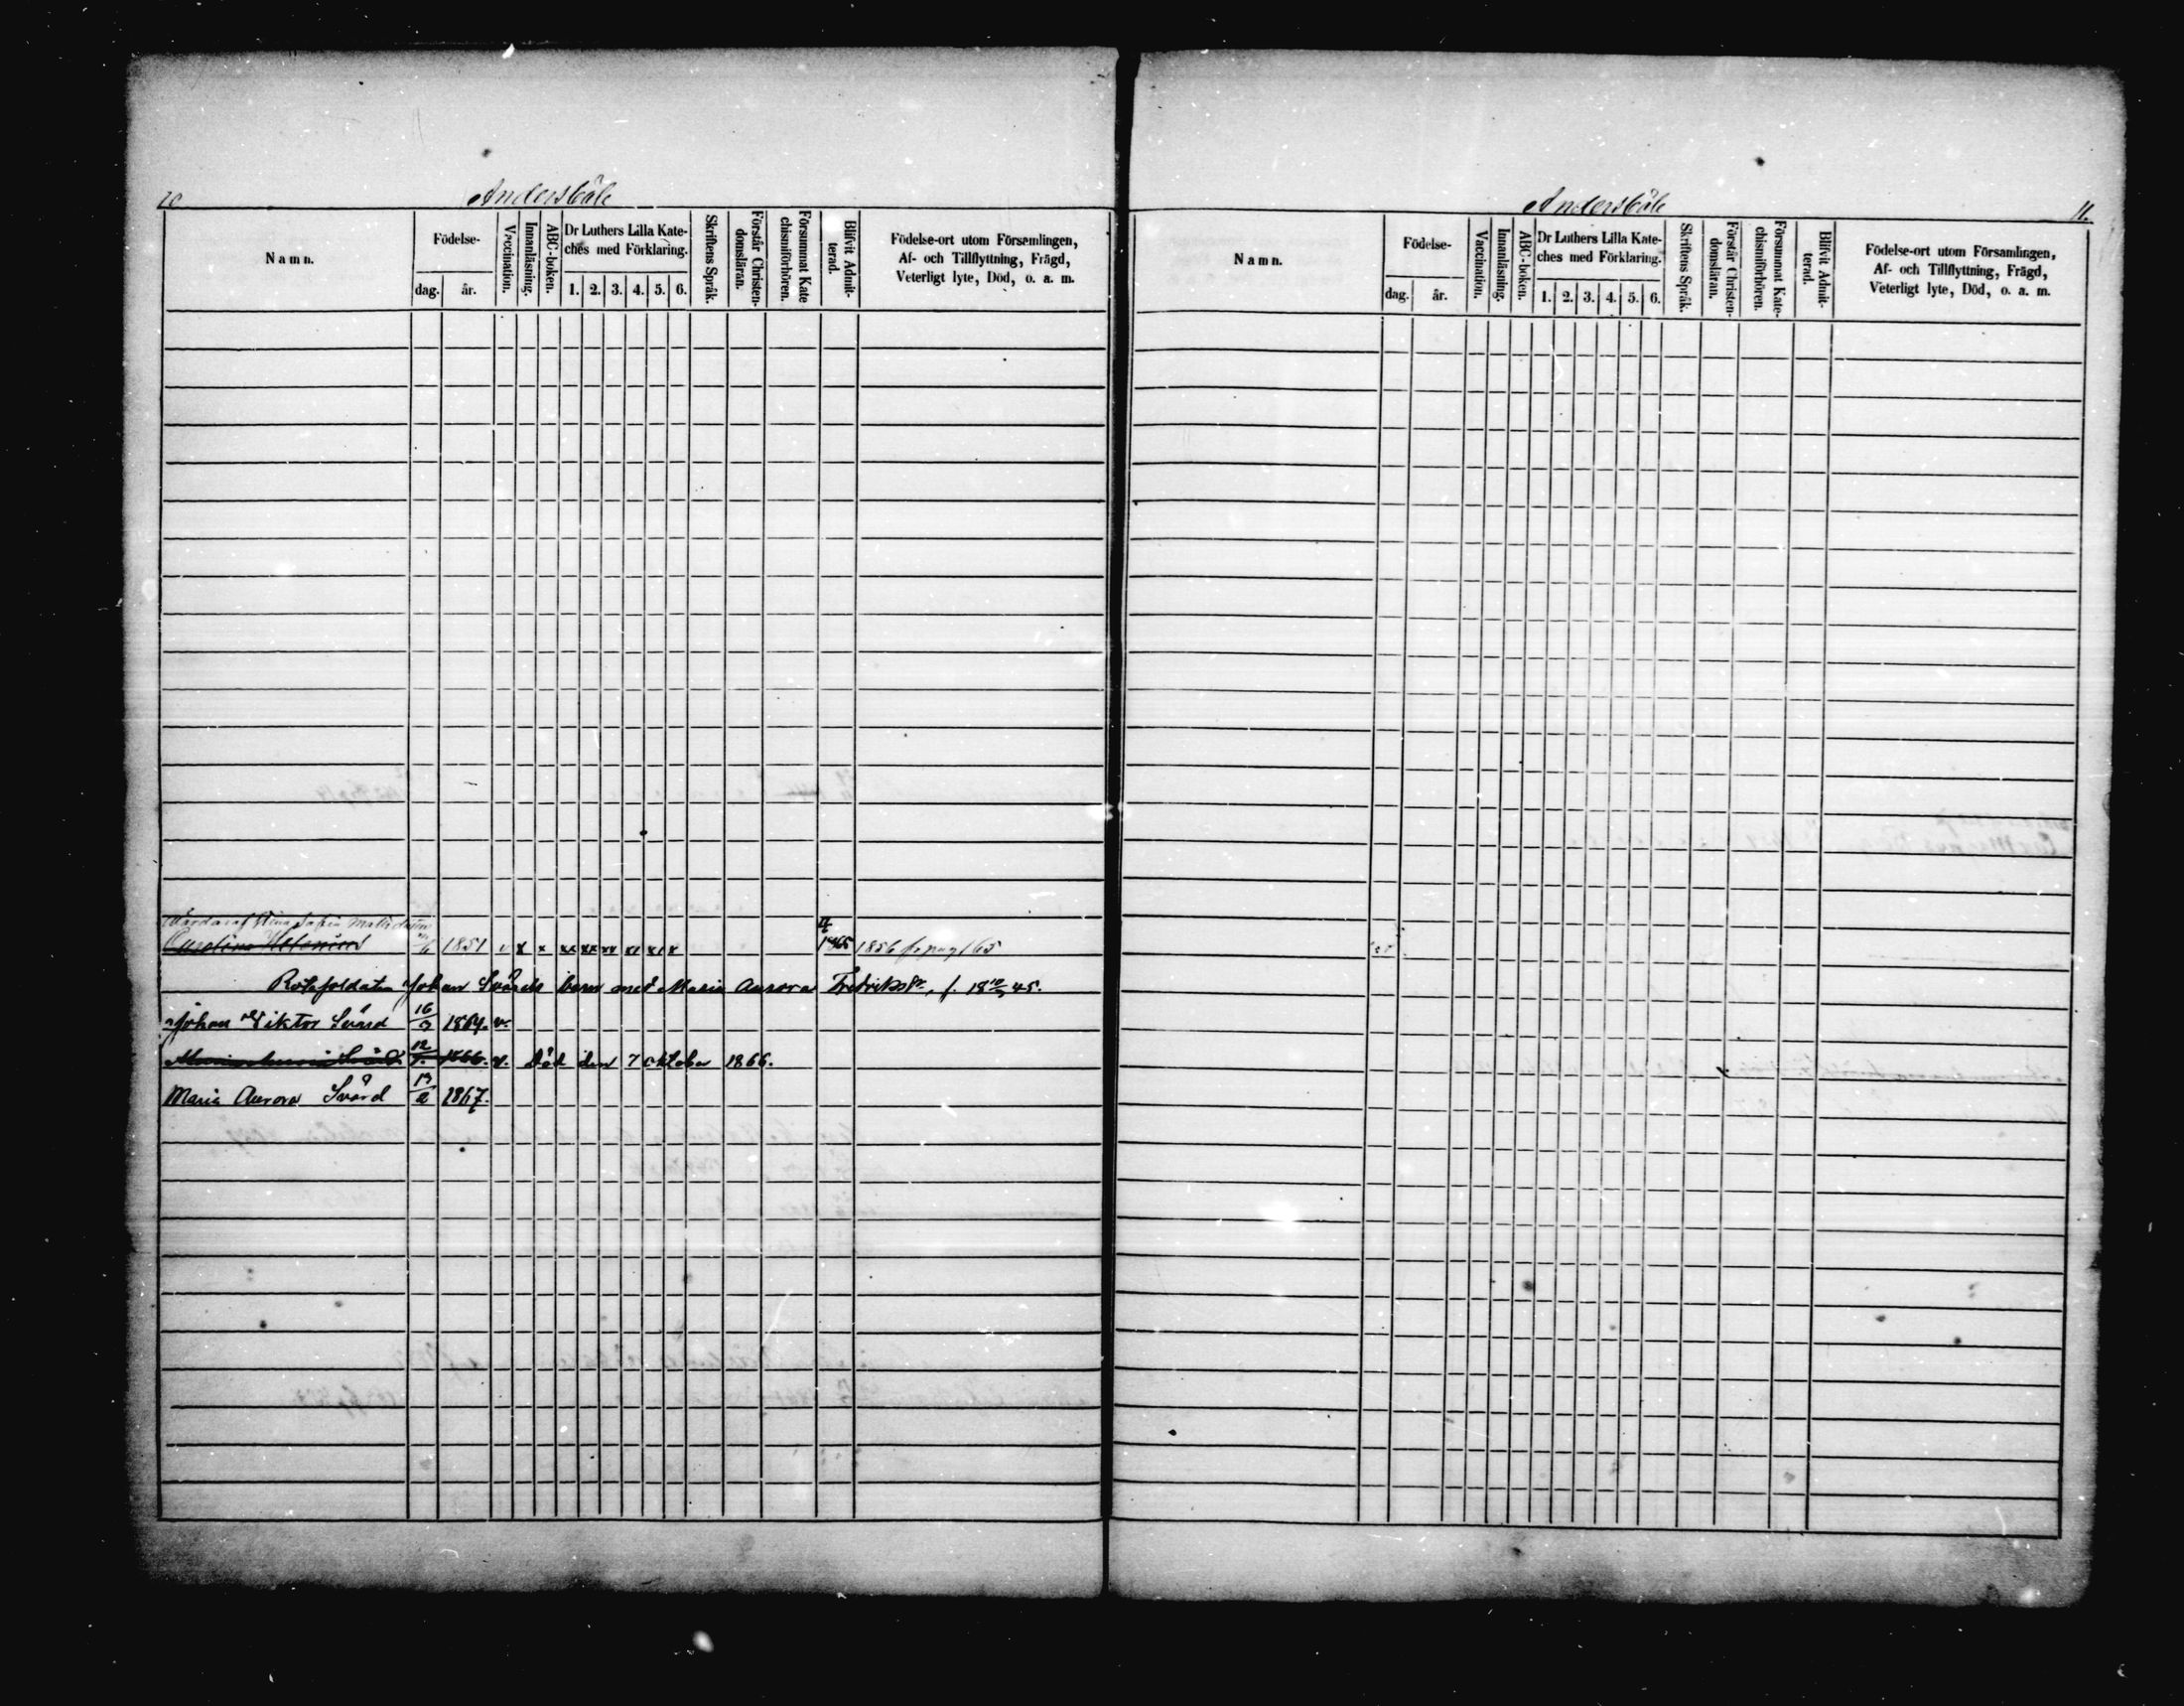 10
Andersböle
Namn.
Födelse-
dag. år.
Vaccination.
Innanläsning.
ABC-boken.
Dr Luthers Lilla Kate-
ches med Förklaring.
1. 2. 3. 4. 5. 6.
Skriftens Språk.
Förstår Christen-
domsläran.
Försummat Kate
chismiförhören.
Blifvit Admit-
terad.
Födelse-ort utom Församlingen,
Af- och Tillflyttning, Frägd,
Veterligt lyte, Död, o. a. m.
1851 v x x xx xx xx xx xx x 1865 1856 fr pag 165
Johan Svärds barn med Maria Aurora Fredriksdr, f. 18 10/9 45.
Johan Viktor Svärd 16/3 1864. v.
12 1866. v. Död den 7 oktober 1866.
Maria Aurora Svärd 1867.
Andersböle
11.
Namn.
Födelse-
dag. år.
Vaccination.
Innanläsning.
ABC-boken.
Dr Luthers Lilla Kate-
ches med Förklaring.
1. 2. 3. 4. 5. 6.
Skriftens Språk.
Förstår Christen-
domsläran.
Försummat Kate-
chismiförhören.
Blifvit Admit-
terad.
Födelse-ort utom Församlingen,
Af- och Tillflyttning, Frägd,
Veterligt lyte, Död, o. a. m.